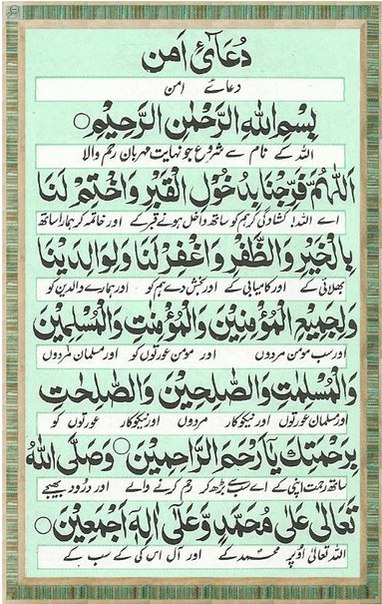 دُعَآئِ اَمن
دعائے امن
بِسْمِ اللهِ الرَّحْمٰنِ الرَّحِيْمِ○
اللہ کے نام سے شروع جو نہایت مہربان رحم والا
اَللّٰهُمَّ فَرِّحْنَا بِدُخُوْلِ الْقَبْرِ وَاخْتِمْ لَنَا
اے اللہ! کشادہ کر ہم کو ساتھ داخل ہونے قبر کے اور خاتمہ کر ہمارا ساتھ
بِالْخَيْرِ وَالظَّفْرِ وَاغْفِرْ لَنَا وَلِوَالِدَيْنَا
بھلائی کے اور کامیابی کے اور بخش دے ہم کو اور ہمارے والدین کو
وَلِجَمِيْعِ الْمُؤْمِنِيْنَ وَالْمُؤْمِنٰتِ وَالْمُسْلِمِيْنَ
اور سب مؤمن مردوں اور مؤمن عورتوں کو اور مسلمان مردوں
وَالْمُسْلِمٰتِ وَالصّٰلِحِيْنَ وَالصّٰلِحٰتِ
اور مسلمان عورتوں اور نیکوکار مردوں اور نیکوکار عورتوں کو
بِرَحْمَتِكَ يَآ اَرْحَمَ الرَّاحِمِيْنَ○ وَصَلَّى اللهُ
ساتھ رحمت اپنی کے اے سب سے بڑھ کر رحم کرنے والے اور درود بھیجے
تَعَالٰى عَلٰى مُحَمَّدٍ وَّعَلٰٓى اٰلِهٖٓ اَجْمَعِيْنَ○
اللہ تعالیٰ اوپر محمد کے اور آل اس کی کے سب کے